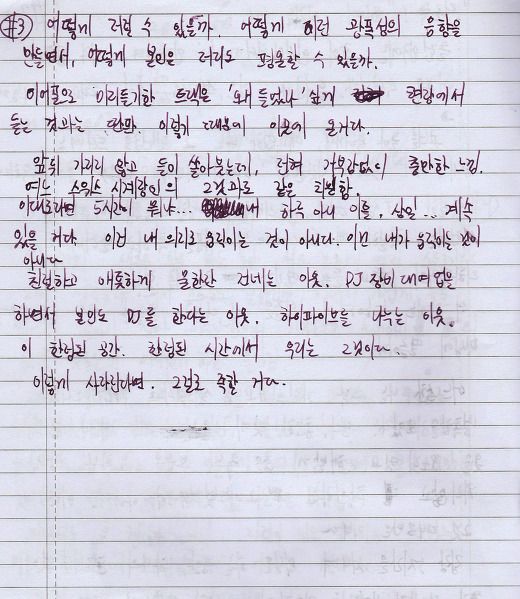 #3) 어떻게 저럴 수 있을까. 어떻게 이런 광폭성의 음향을
만들면서, 어떻게 본인은 저리도 평온할 수 있을까.
이어폰으로 미리듣기한 트랙은 '왜 들었나' 싶게 현장에서
듣는 것과는 딴판. 이렇기 때문에 이곳에 온거다.
앞뒤 가리지 않고 들이 쏟아붓는데, 전혀 거부감없이 충만한 느낌.
여느 스위스 시계장인의 그것과도 같은 치밀함.
이대로라면 5시간이 뭐냐... 내 하루 아니 이틀, 삼일... 계속
있을 거다. 이건 내 의지로 움직이는 것이 아니다. 이미 내가 움직이는 것이
아니다
친절하고 애틋하게 물한잔 건네는 이웃. DJ 장비 대여업을
하면서 본인도 DJ를 한다는 이웃. 하이파이브를 나누는 이웃.
이 한정된 공간. 한정된 시간에서 우리는 그것이다.
이렇게 사라진다면. 그걸로 족할 거다.